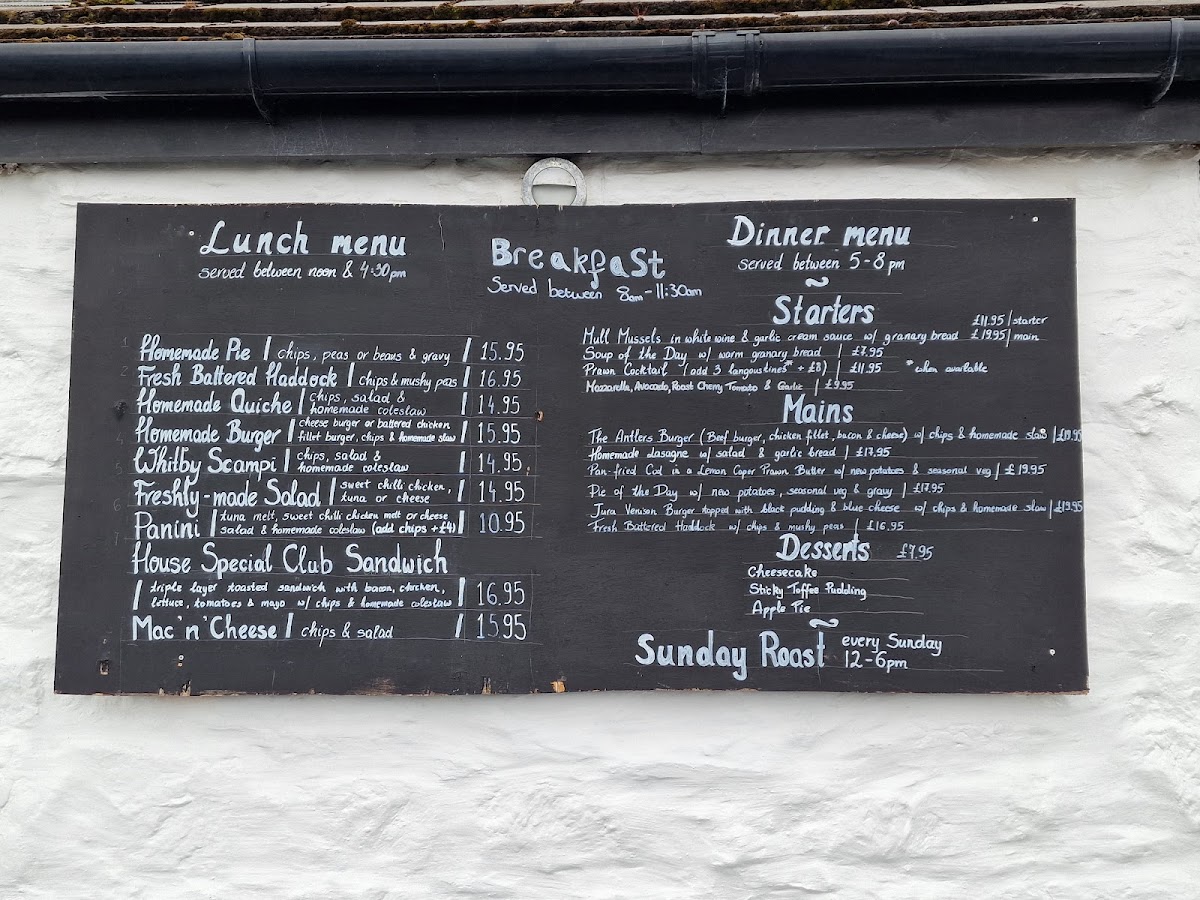 Lunch menu
served between noon & 4:30pm
Homemade Pie | chips, peas or beans & gravy | 15.95
Fresh Battered Haddock | chips & mushy peas | 16.95
Homemade Quiche | chips, salad &
homemade coleslaw | 14.95
Homemade Burger | cheese burger or battered chicken
fillet burger, chips & homemade slaw | 15.95
Whitby Scampi | chips, salad &
homemade coleslaw | 14.95
Freshly-made Salad | sweet chilli chicken,
tuna or cheese | 14.95
Panini | tuna melt, sweet chilli chicken melt or cheese
salad & homemade coleslaw (add chips +£4) | 10.95
House Special Club Sandwich
| triple layer toasted sandwich with bacon, chicken,
lettuce, tomatoes & mayo w/ chips & homemade coleslaw | 16.95
Mac 'n' Cheese | chips & salad | 15.95
Breakfast
Served between 8am-11:30am
Dinner menu
served between 5-8pm
~
Starters
£11.95 | starter
Mull Mussels in white wine & garlic cream sauce w/ granary bread £19.95 | main
Soup of the Day w/ warm granary bread | £7.95
Prawn Cocktail (add 3 langoustines* + £8) | £11.95 *when available
Mozzarella, Avocado, Roast Cherry Tomato & Garlic | £9.95
Mains
The Antlers Burger (Beef burger, chicken fillet, bacon & cheese) w/ chips & homemade slaw | £19.95
Homemade lasagne w/ salad & garlic bread | £17.95
Pan-fried Cod in a Lemon Caper Prawn Butter w/ new potatoes & seasonal veg | £19.95
Pie of the Day w/ new potatoes, seasonal veg & gravy | £17.95
Jura Venison Burger topped with black pudding & blue cheese w/ chips & homemade slaw | £19.95
Fresh Battered Haddock w/ chips & mushy peas | £16.95
Desserts £7.95
Cheesecake
Sticky Toffee Pudding
Apple Pie
~
Sunday Roast every Sunday
12-6pm